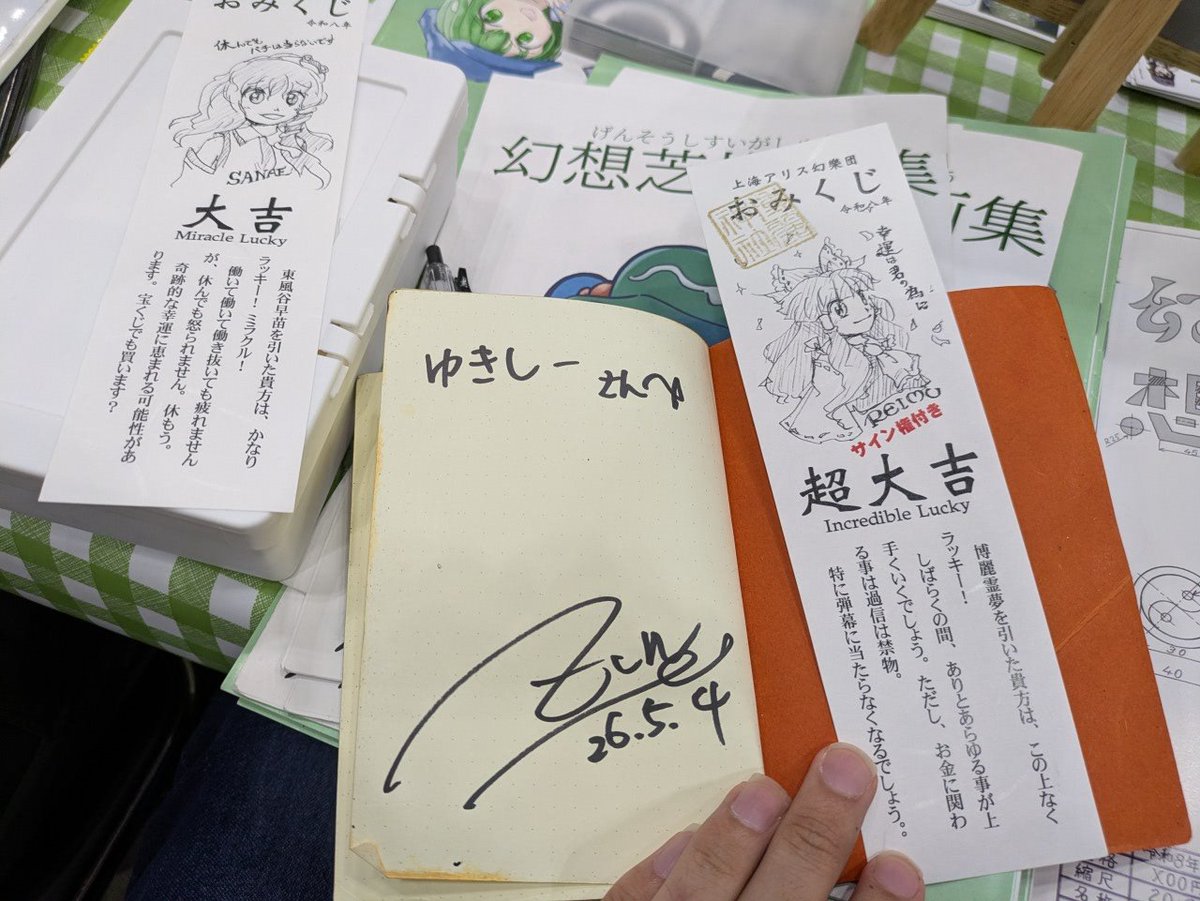 おみくじ
令和八年
休んでも
バチは当らないです
SANAE
大吉
Miracle Lucky
東風谷早苗を引いた貴方は、かなり
ラッキー！ミラクル！
働いて働いて働き抜いても疲れません
が、休んでも怒られません。休もう。
奇跡的な幸運に恵まれる可能性があ
ります。宝くじでも買います？
げんそうしすいが
幻想芝
集
術集
ゆきしー
さんへ
ZUN
26.5.4
上海アリス幻樂団
おみくじ
令和八年
幸運は君の為に
REIMU
サイン権付き
超大吉
Incredible Lucky
博麗霊夢を引いた貴方は、この上なく
ラッキー！
しばらくの間、ありとあらゆる事が上
手くいくでしょう。ただし、お金に関わ
る事は過信は禁物。
特に弾幕に当たらなくなるでしょう。
幻
想
R25
45
30
40
令和8年
格
縮尺
X00
名